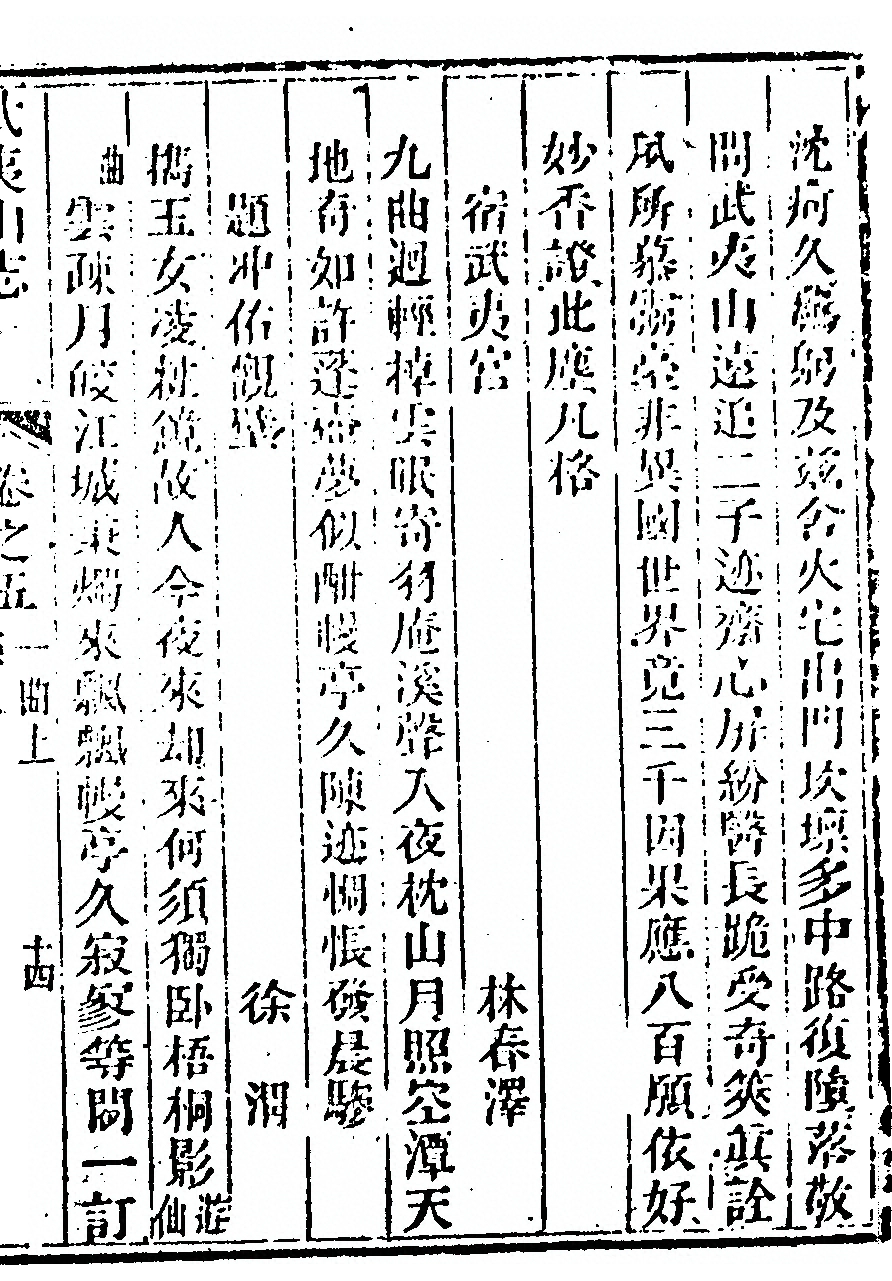 沈痾久羈躬及茲舍火宅出門坎壈多中路復隕落敬
問武夷山遠追二子迹齋心屏紛醫長跪受奇筴眞詮
夙所慕寥非異國世界竟三千因果應八百願依好
妙香證此塵凡格
宿武夷宮 林春澤
九曲迴輕棹雲眠寄羽庵溪聲入夜枕山月照空潭天
地奇如許蓬壺夢似酣幔亭久陳迹惆悵發晨驂
題冲佑觀壁 徐
攜玉女凌粧鏡故人今夜來却來何須獨卧梧桐影仙遊
曲雲疎月皎江城秉燭來飄飄幔亭久寂寥等閒一訂
武夷山志 卷之五 一曲上 十四